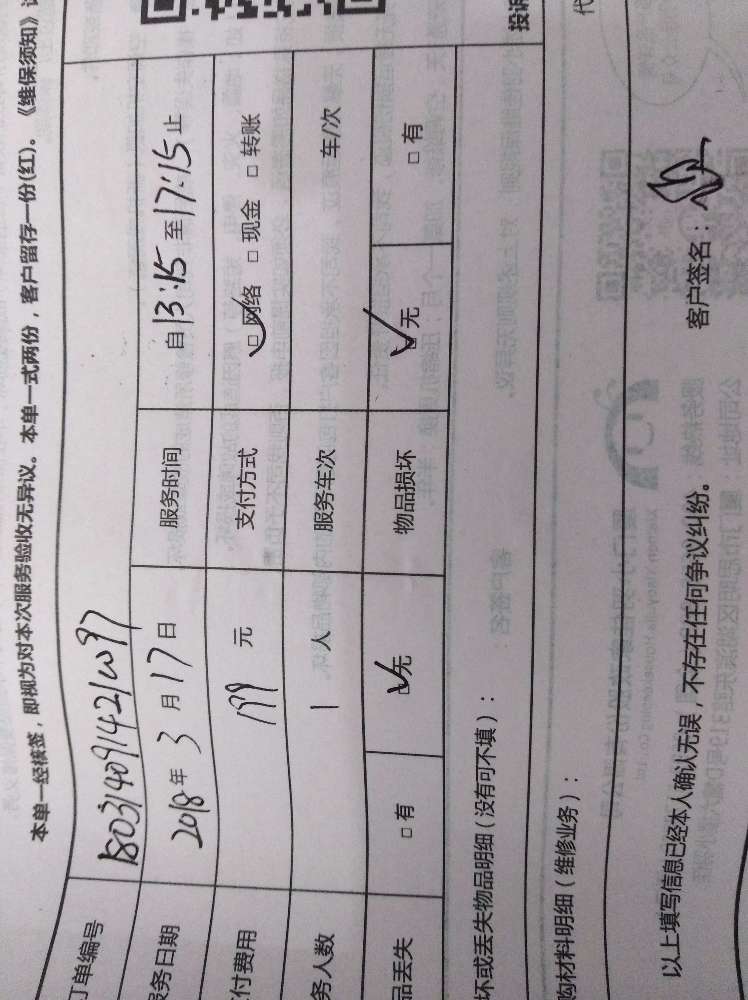 本单一经核签，即视为对本次服务验收无异议。本单一式两份，客户留存一份(红)。《维保须知》
订单编号 1803140914210097
服务日期 2018年 3 月 17 日 服务时间 自13:15 至17:15止
付费用 199 元 支付方式 □ 网络 □ 现金 □ 转账
务人数 1 人 服务车次 车/次
品丢失 □ 有 □ 无 物品损坏 □ 无 □ 有
坏或丢失物品明细（没有可不填）：
购材料明细（维修业务）：
投诉
代
以上填写信息已经本人确认无误，不存在任何争议纠纷。 客户签名：